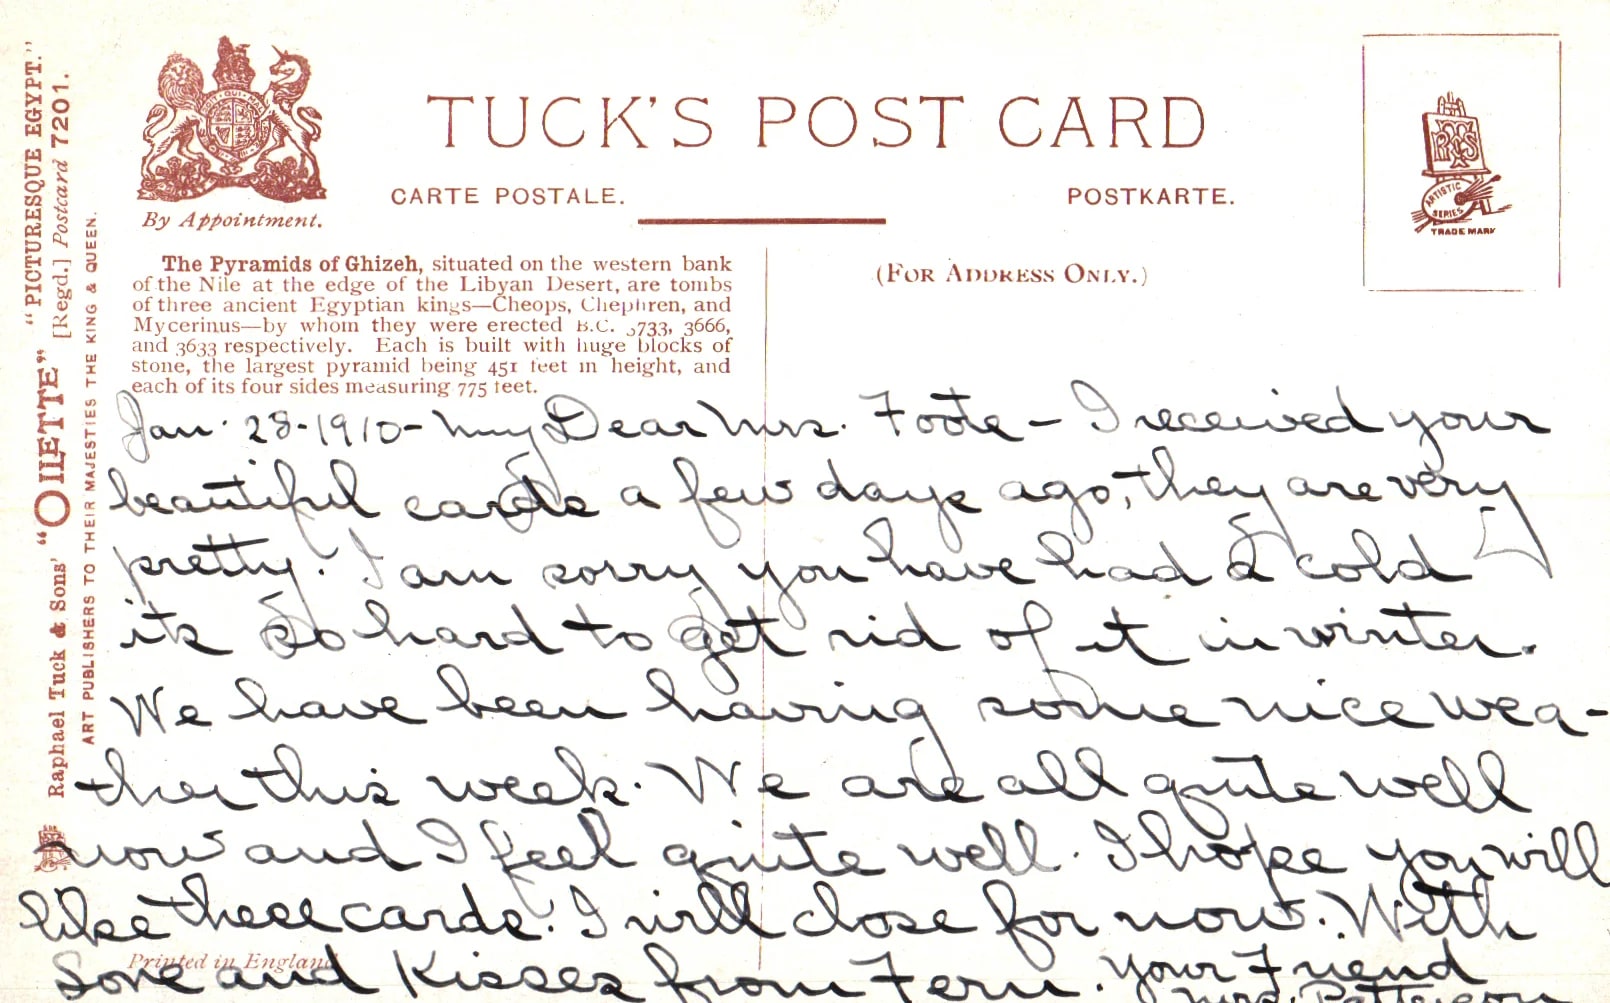 TUCK'S POST CARD
CARTE POSTALE.
POSTKARTE.
By Appointment.
ARTISTIC
SERIES
TRADE MARK
"PICTURESQUE EGYPT."
Raphael Tuck & Sons' "OILETTE" [Regd.] Postcard 7201.
ART PUBLISHERS TO THEIR MAJESTIES THE KING & QUEEN.
The Pyramids of Ghizeh, situated on the western bank
of the Nile at the edge of the Libyan Desert, are tombs
of three ancient Egyptian kings—Cheops, Chephren, and
Mycerinus—by whom they were erected B.C. 3733, 3666,
and 3633 respectively. Each is built with huge blocks of
stone, the largest pyramid being 451 feet in height, and
each of its four sides measuring 775 feet.
(FOR ADDRESS ONLY.)
Jan. 28-1910- My Dear Mrs. Foote - I received your
beautiful cards a few days ago, they are very
pretty. I am sorry you have had a cold
its so hard to get rid of it in winter.
We have been having some nice wea-
ther this week. We are all quite well
now and I feel quite well. I hope you will
like these cards. I will close for now. With
Love and Kisses from Fern. Your Friend
Mrs. Patterson
Printed in England